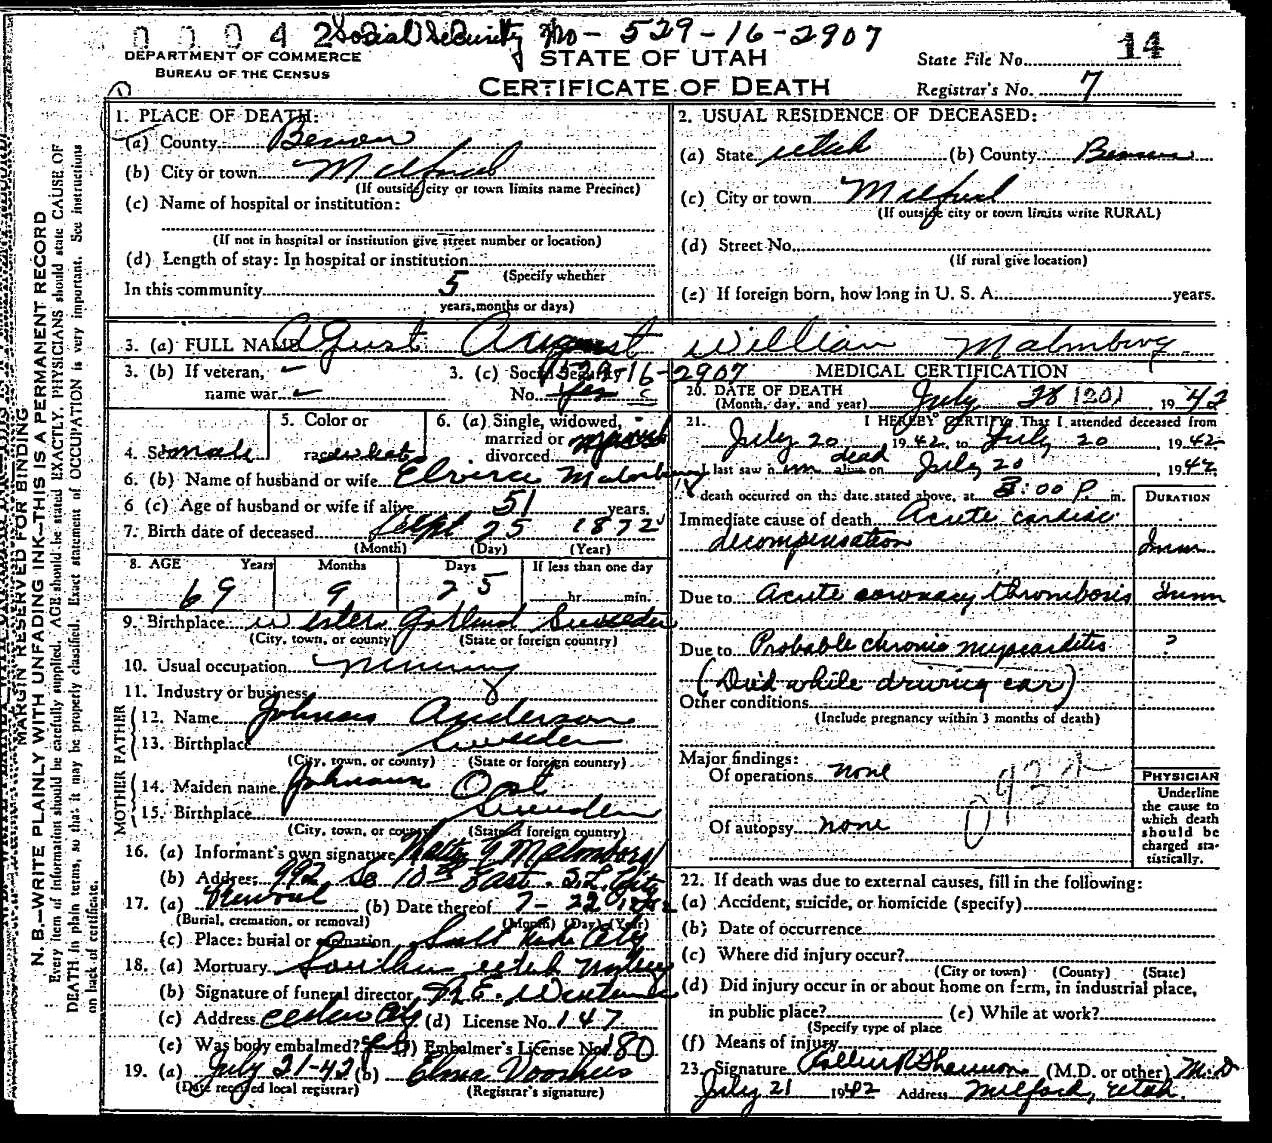 0 0 0 4 2 Social Security No - 529-16-2907
DEPARTMENT OF COMMERCE
BUREAU OF THE CENSUS
STATE OF UTAH
CERTIFICATE OF DEATH
State File No. 14
Registrar's No. 7
1. PLACE OF DEATH:
(a) County Beaver
(b) City or town Milford
(If outside city or town limits name Precinct)
(c) Name of hospital or institution:
(If not in hospital or institution give street number or location)
(d) Length of stay: In hospital or institution
(Specify whether
In this community 5
years, months or days)
2. USUAL RESIDENCE OF DECEASED:
(a) State Utah (b) County Beaver
(c) City or town Milford
(If outside city or town limits write RURAL)
(d) Street No.
(If rural give location)
(e) If foreign born, how long in U. S. A. years.
3. (a) FULL NAME Agust August William Malmberg
3. (b) If veteran, -
name war -
3. (c) Social Security
No. 529-16-2907
yes
4. Sex male
5. Color or
race white
6. (a) Single, widowed,
married or
divorced married
6. (b) Name of husband or wife Malmberg
6 (c) Age of husband or wife if alive 51 years.
7. Birth date of deceased Sept 25 1872
(Month) (Day) (Year)
8. AGE Years Months Days If less than one day
69 9 25 hr. min.
9. Birthplace Gotland Sweden
(City, town, or county) (State or foreign country)
10. Usual occupation Mining
11. Industry or business
FATHER
12. Name Anderson
13. Birthplace Sweden
(City, town, or county) (State or foreign country)
MOTHER
14. Maiden name
15. Birthplace Sweden
(City, town, or county) (State or foreign country)
16. (a) Informant's own signature Malmberg
(b) Address 992 So 10th East. S. L. City
17. (a) Removal (b) Date thereof 7-22 1942
(Burial, cremation, or removal) (Month) (Day) (Year)
(c) Place: burial or cremation Salt Lake City
18. (a) Mortuary Southern Utah
(b) Signature of funeral director
(c) Address Cedar City (d) License No. 147
(e) Was body embalmed? yes (f) Embalmer's License No. 180
19. (a) July 21-42 (b) Elma Voorhees
(Date received local registrar) (Registrar's signature)
MEDICAL CERTIFICATION
20. DATE OF DEATH
(Month, day, and year) July 28 (20) , 1942
21. I HEREBY CERTIFY, That I attended deceased from
July 20, 1942, to July 20 1942
I last saw him dead alive on July 20 1942
death occurred on the date stated above, at 3:00 P. m.
DURATION
Immediate cause of death Acute cardiac
decompensation
Due to Acute coronary thrombosis
Due to Probable chronic myocarditis ?
(Died while driving car)
Other conditions
(Include pregnancy within 3 months of death)
Major findings:
Of operations none
Of autopsy none
PHYSICIAN
Underline
the cause to
which death
should be
charged sta-
tistically.
22. If death was due to external causes, fill in the following:
(a) Accident, suicide, or homicide (specify)
(b) Date of occurrence
(c) Where did injury occur?
(City or town) (County) (State)
(d) Did injury occur in or about home on farm, in industrial place,
in public place? (e) While at work?
(Specify type of place
(f) Means of injury
23. Signature Shannon (M.D. or other) M.D
July 21 1942 Address Milford, Utah.
MARGIN RESERVED FOR BINDING
N. B.—WRITE PLAINLY WITH UNFADING INK—THIS IS A PERMANENT RECORD
Every item of information should be carefully supplied. AGE should be stated EXACTLY. PHYSICIANS should state CAUSE OF
DEATH in plain terms, so that it may be properly classified. Exact statement of OCCUPATION is very important. See instructions
on back of certificate.